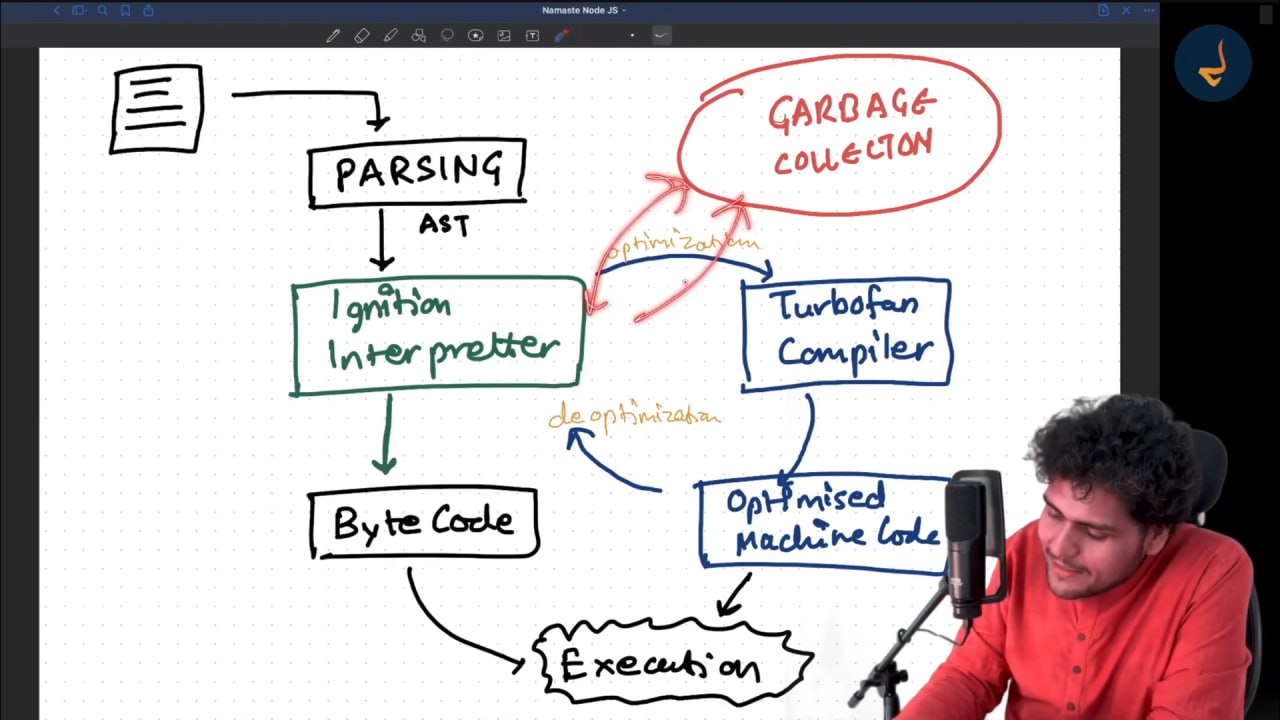 Namaste Node JS
GARBAGE
COLLECTON
PARSING
AST
optimization
Ignition
Interpretter
Turbofan
Compiler
deoptimization
Byte Code
Optimised
Machine Code
Execution